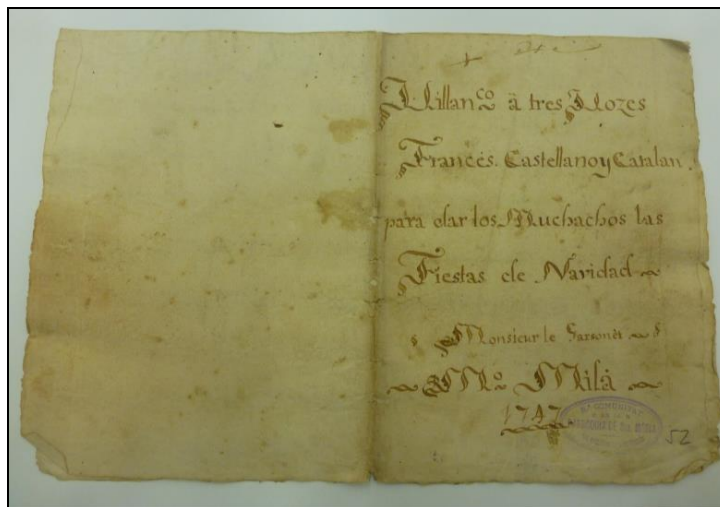 Villan.co à tres Vozes
Francés. Castellano y Catalan.
para dar los Muchachos las
Fiestas de Navidad
Monsieur le Garsonet
M.o Milà
1747
52